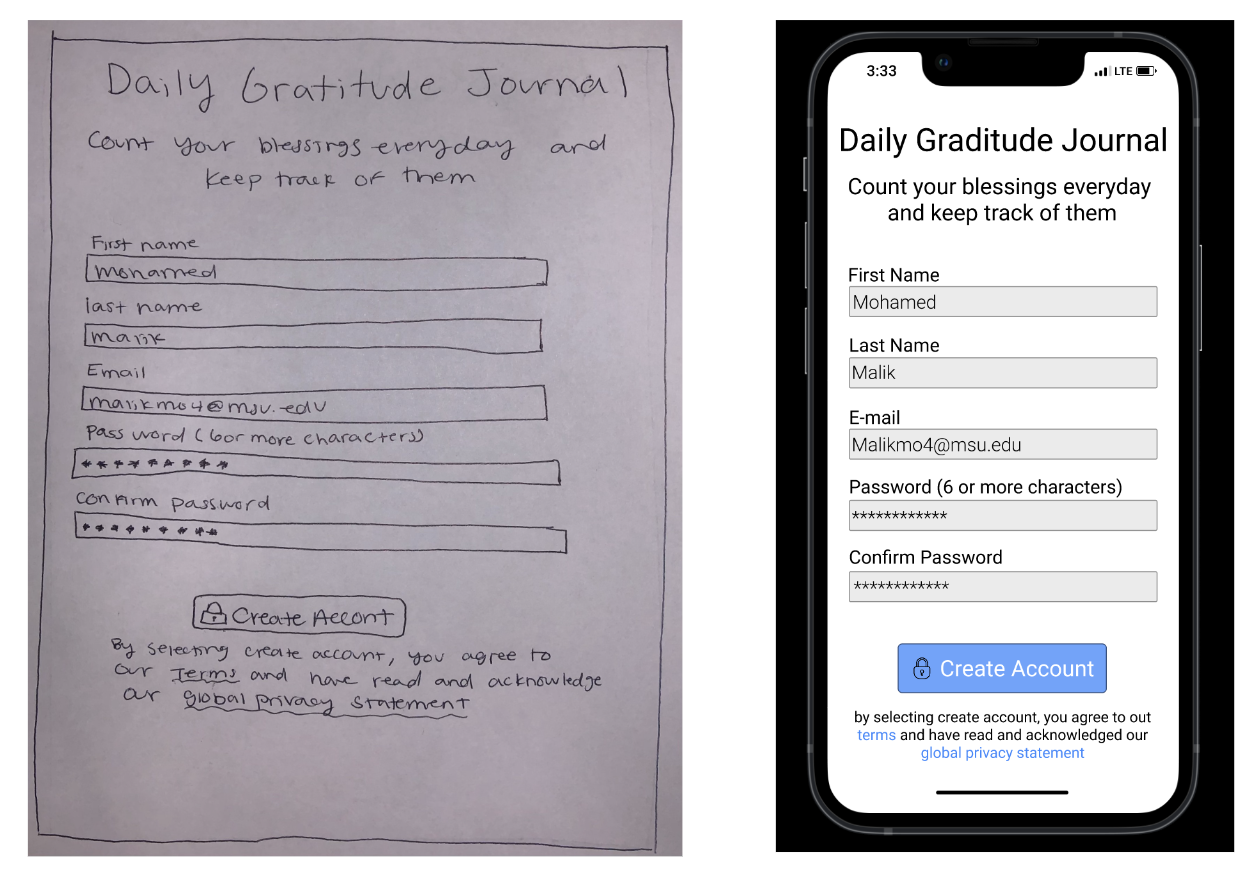 Daily Gratitude Journal
Count your blessings everyday and
keep track of them
First name
mohamed
last name
malik
Email
malikmo4@msu.edu
Password (6 or more characters)
*********
Confirm password
*********
Create Accont
By selecting create account, you agree to
our Terms and have read and acknowledge
our global privacy statement
3:33
LTE
Daily Graditude Journal
Count your blessings everyday
and keep track of them
First Name
Mohamed
Last Name
Malik
E-mail
Malikmo4@msu.edu
Password (6 or more characters)
************
Confirm Password
************
Create Account
by selecting create account, you agree to out
terms and have read and acknowledged our
global privacy statement